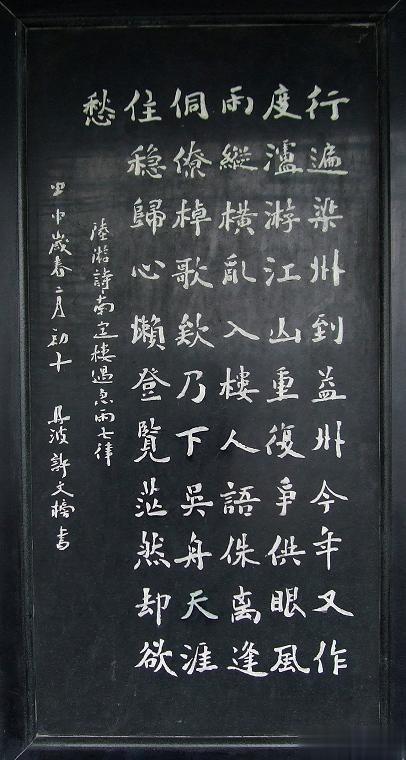 行遍梁州到益州今年又作
度瀘游江山重復争供眼風
雨縱横亂入樓人語侏离逢
侗僚棹歌欸乃下吴舟天涯
住稳歸心懶登覽茫然却欲
愁
陸游詩南定樓遇急雨七律
甲申歲春二月初十 丹波許文榜書